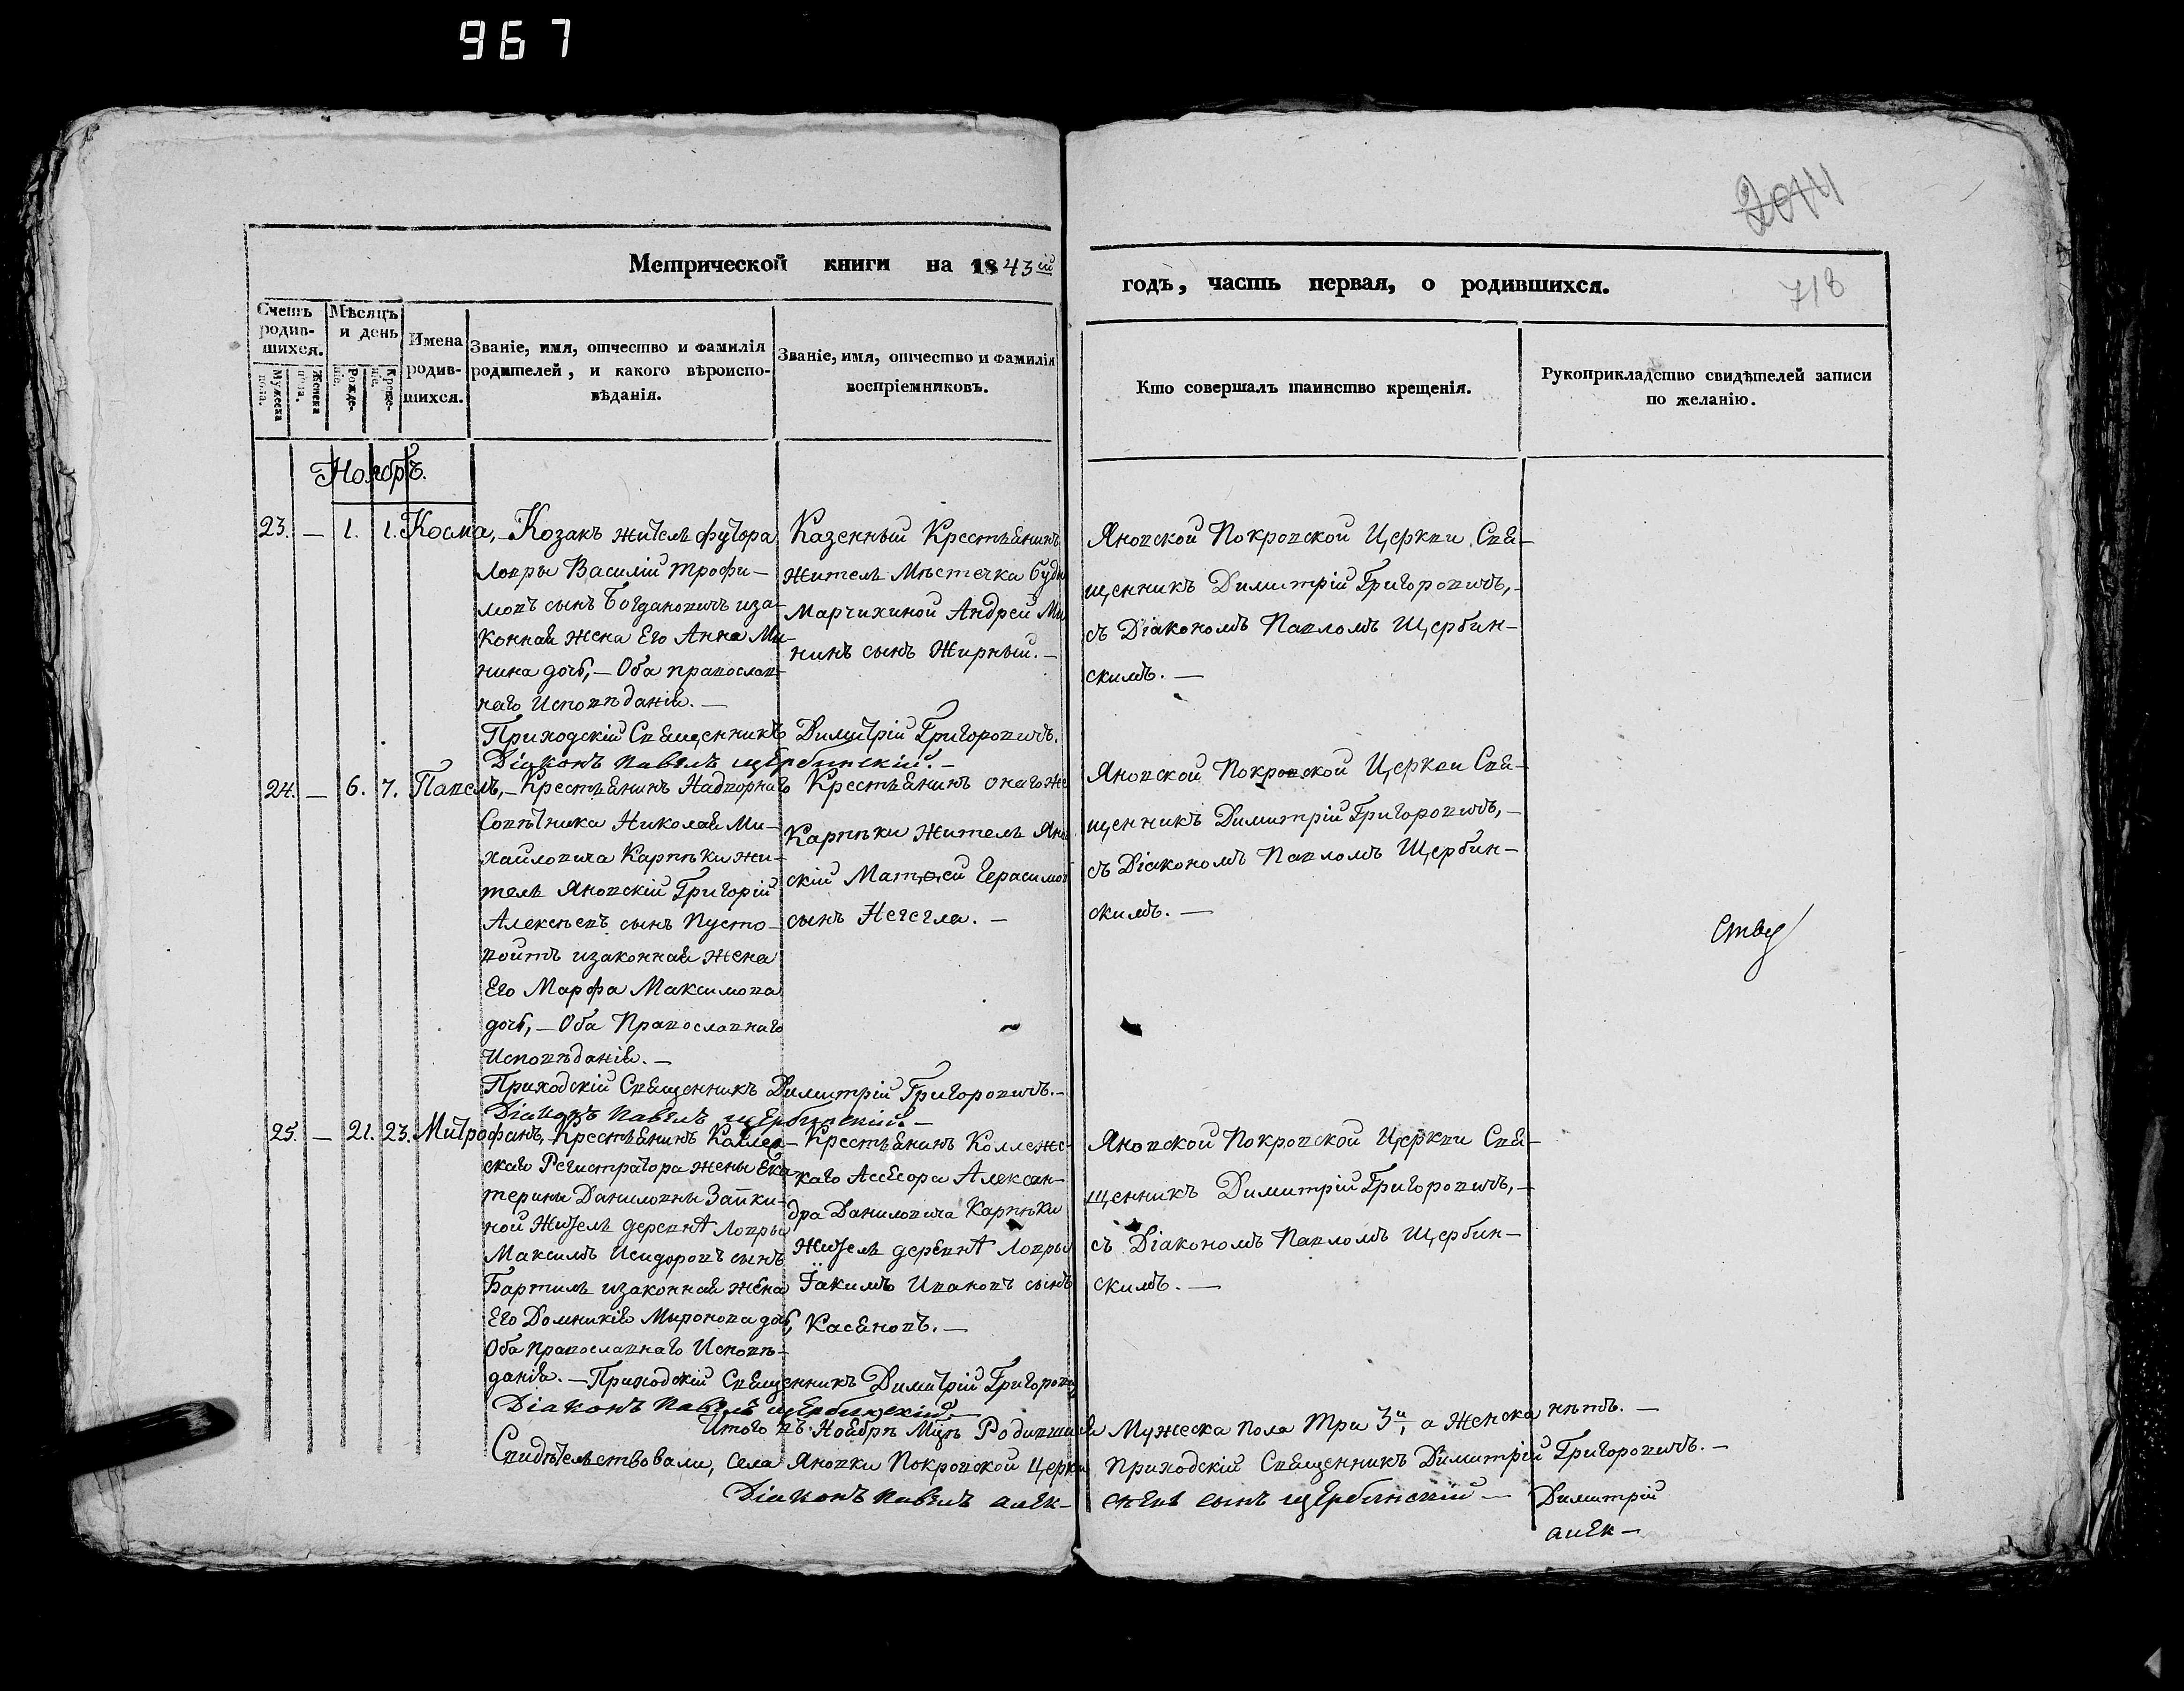 967
2044
718
Метрической книги на 1843ій
годъ, часть первая, о родившихся.
Счетъ родив-шихся.
Мужеска пола.
Женска пола.
Мѣсяцъ и день
Рожде-ніе.
Креще-ніе.
Имена родив-шихся.
Званіе, имя, отчество и фамилія родителей, и какого вѣроиспо-вѣданія.
Званіе, имя, отчество и фамилія воспріемниковъ.
Кто совершалъ таинство крещенія.
Рукоприкладство свидѣтелей записи по желанію.
Ноябрь.
23. — 1. 1. Косма, —
Козакъ житель футора
Ловры Василій Трофи-
мовъ сынъ Богдановичъ иза-
конная жена Его Анна Ми-
нина дочь, — Оба православ-
наго Исповѣданія. —
Казенный Крестьянинъ
житель Мѣстечка Буды
Марчихиной Андрей Ми
нинъ сынъ Жирный. —
Яновской Покровской Церкви Свя-
щенникъ Димитрій Григоровичъ, —
съ Діакономъ Павломъ Щербин-
скимъ. —
Приходскій Священникъ Димитрій Григоровичъ.
Діаконъ Павелъ Щербинскій. —
24. — 6. 7. Павелъ, —
Крестьянинъ Надворнаго
Совѣтника Николая Ми-
хайловича Карпѣки жи-
тель Яновскій Григорій
Алексѣевъ сынъ Пусто-
войтъ изаконная жена
Его Марфа Максимова
дочь, — Оба Православнаго
Исповѣданія. —
Крестьянинъ онагоже
Карпѣки житель Янов
скій Матѳей Герасимов
сынъ Нечегла. —
Яновской Покровской Церкви Свя-
щенникъ Димитрій Григоровичъ, —
съ Діакономъ Павломъ Щербин-
скимъ. —
Приходскій Священникъ Димитрій Григоровичъ. —
Діаконъ Павелъ Щербинскій. —
25. — 21. 23. Митрофанъ, —
Крестьянинъ Коллеж-
скаго Регистратора жены Ека
терины Даниловны Запки-
ной Житель деревнѣ Ловры
Максимъ Исидоровъ сынъ
Бартишъ изаконная жена
Его Домникія Миронова дочь,
Оба православнаго Исповѣ-
данія. — Приходскій Священникъ Димитрій Григорович
Діаконъ Павелъ Щербинскій —
Крестьянинъ Коллежс-
каго Ассесора Алексан-
дра Даниловича Карпѣки
Житель деревнѣ Ловры
Іакимъ Ивановъ сынъ
Касяновъ. —
Яновской Покровской Церкви Свя-
щенникъ Димитрій Григоровичъ, —
съ Діакономъ Павломъ Щербин-
скимъ. —
Итого въ Ноябрѣ Мцѣ Родившихся Мужеска пола три 3и, а Женска нѣтъ. —
Свидѣтельствовали, Села Яновки Покровской Церкви Приходскій Священникъ Димитрій Григоровичъ. —
Діаконъ Павелъ Алек- сѣевъ сынъ Щербинскій —
Димитрій
Алек —